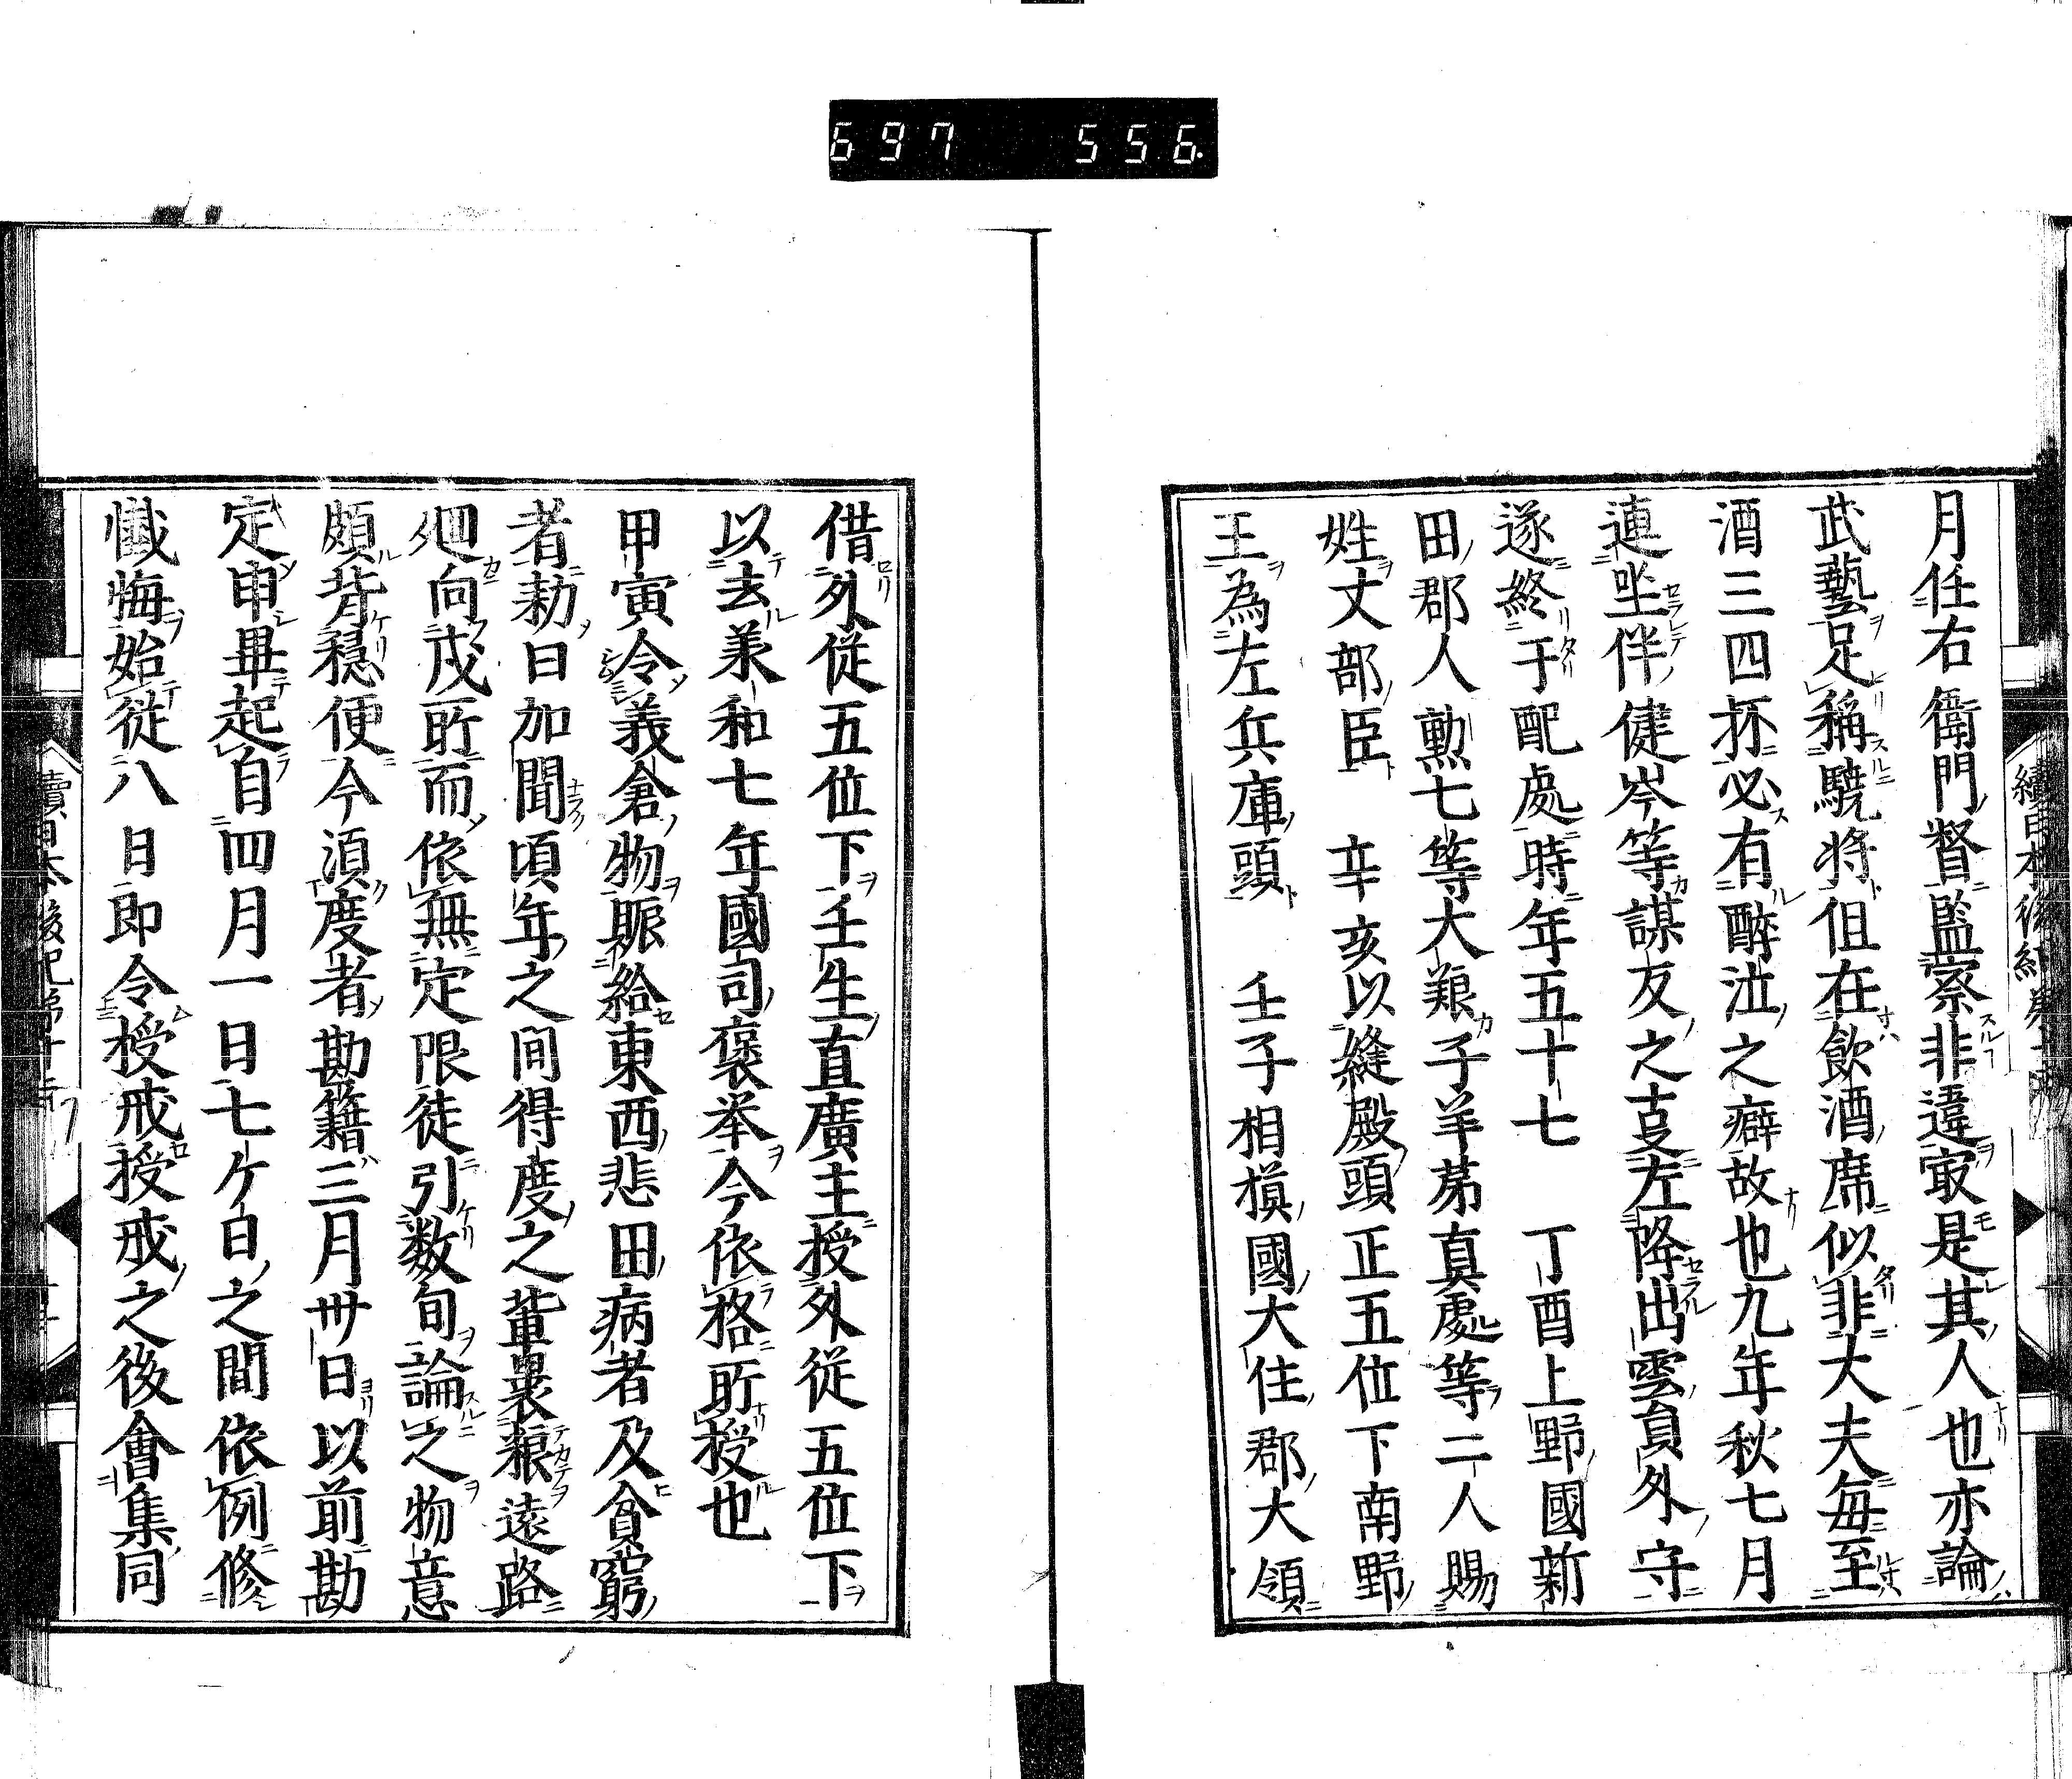 697 556
月任右衛門督監察非違寂是其人也亦論
武藝足稱驍将但在飲酒席似非大夫毎至
酒三四坏必有醉泣之癖故也九年秋七月
連坐伴健岑等謀反之支左降出雲員外守
遂終于配處時年五十七 丁酉上野國新
田郡人勲七等大羪子羊苐真處等二人賜
姓丈部臣 辛亥以縫殿頭正五位下南野
王為左兵庫頭 壬子相摸國大住郡大領
借外從五位下壬生直廣主授外從五位下
以去羕和七年國司褒举今依格所授也
甲寅令義倉物賑給東西悲田病者及貪窮
者勅日加聞頃年之間得度之輩裹粮遠路
廻向戌所而依無定限徒引数旬論之物意
頗背穏便今湏度者勘籍三月卅日以前勘
定申畢起自四月一日七ケ日之間依例修
懺悔始從八日即令授戒授戒之後會集同